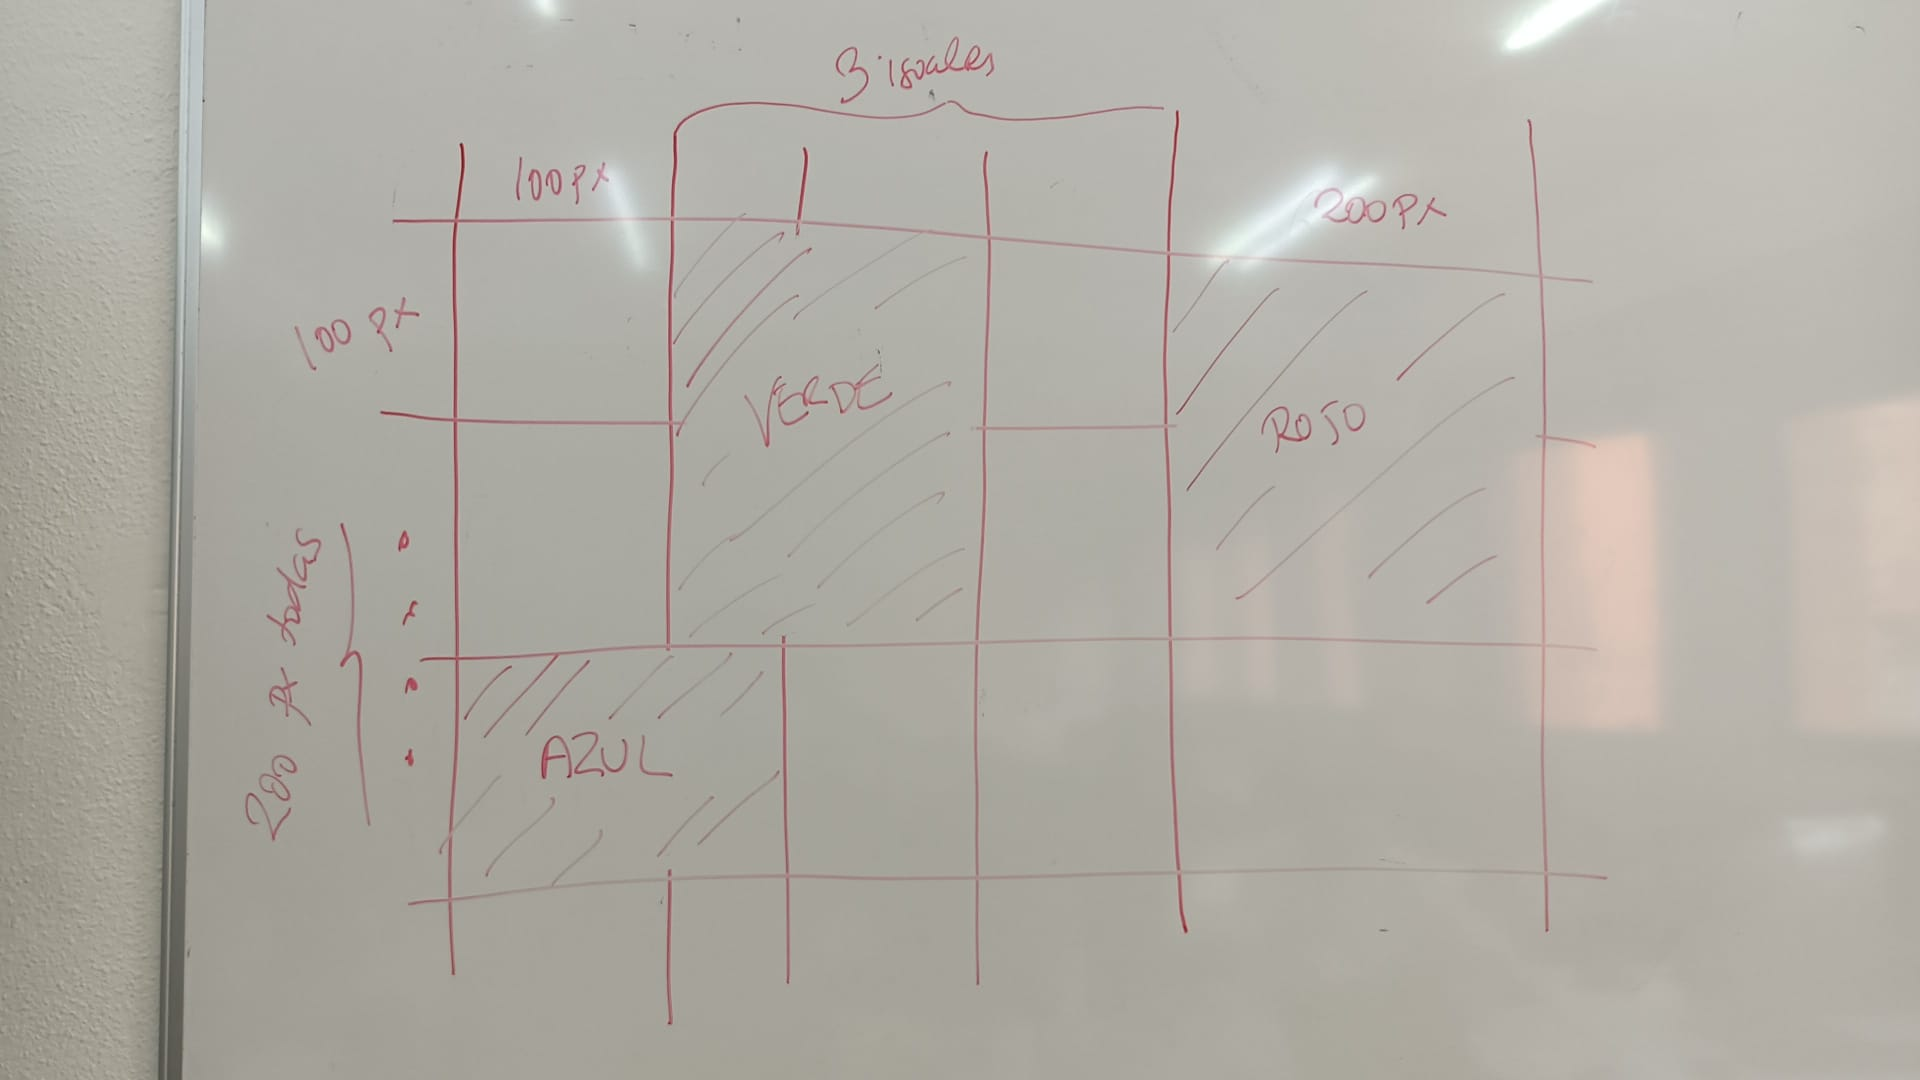 3 iguales
100 px
200 px
100 px
VERDE
ROJO
200 px todas
AZUL